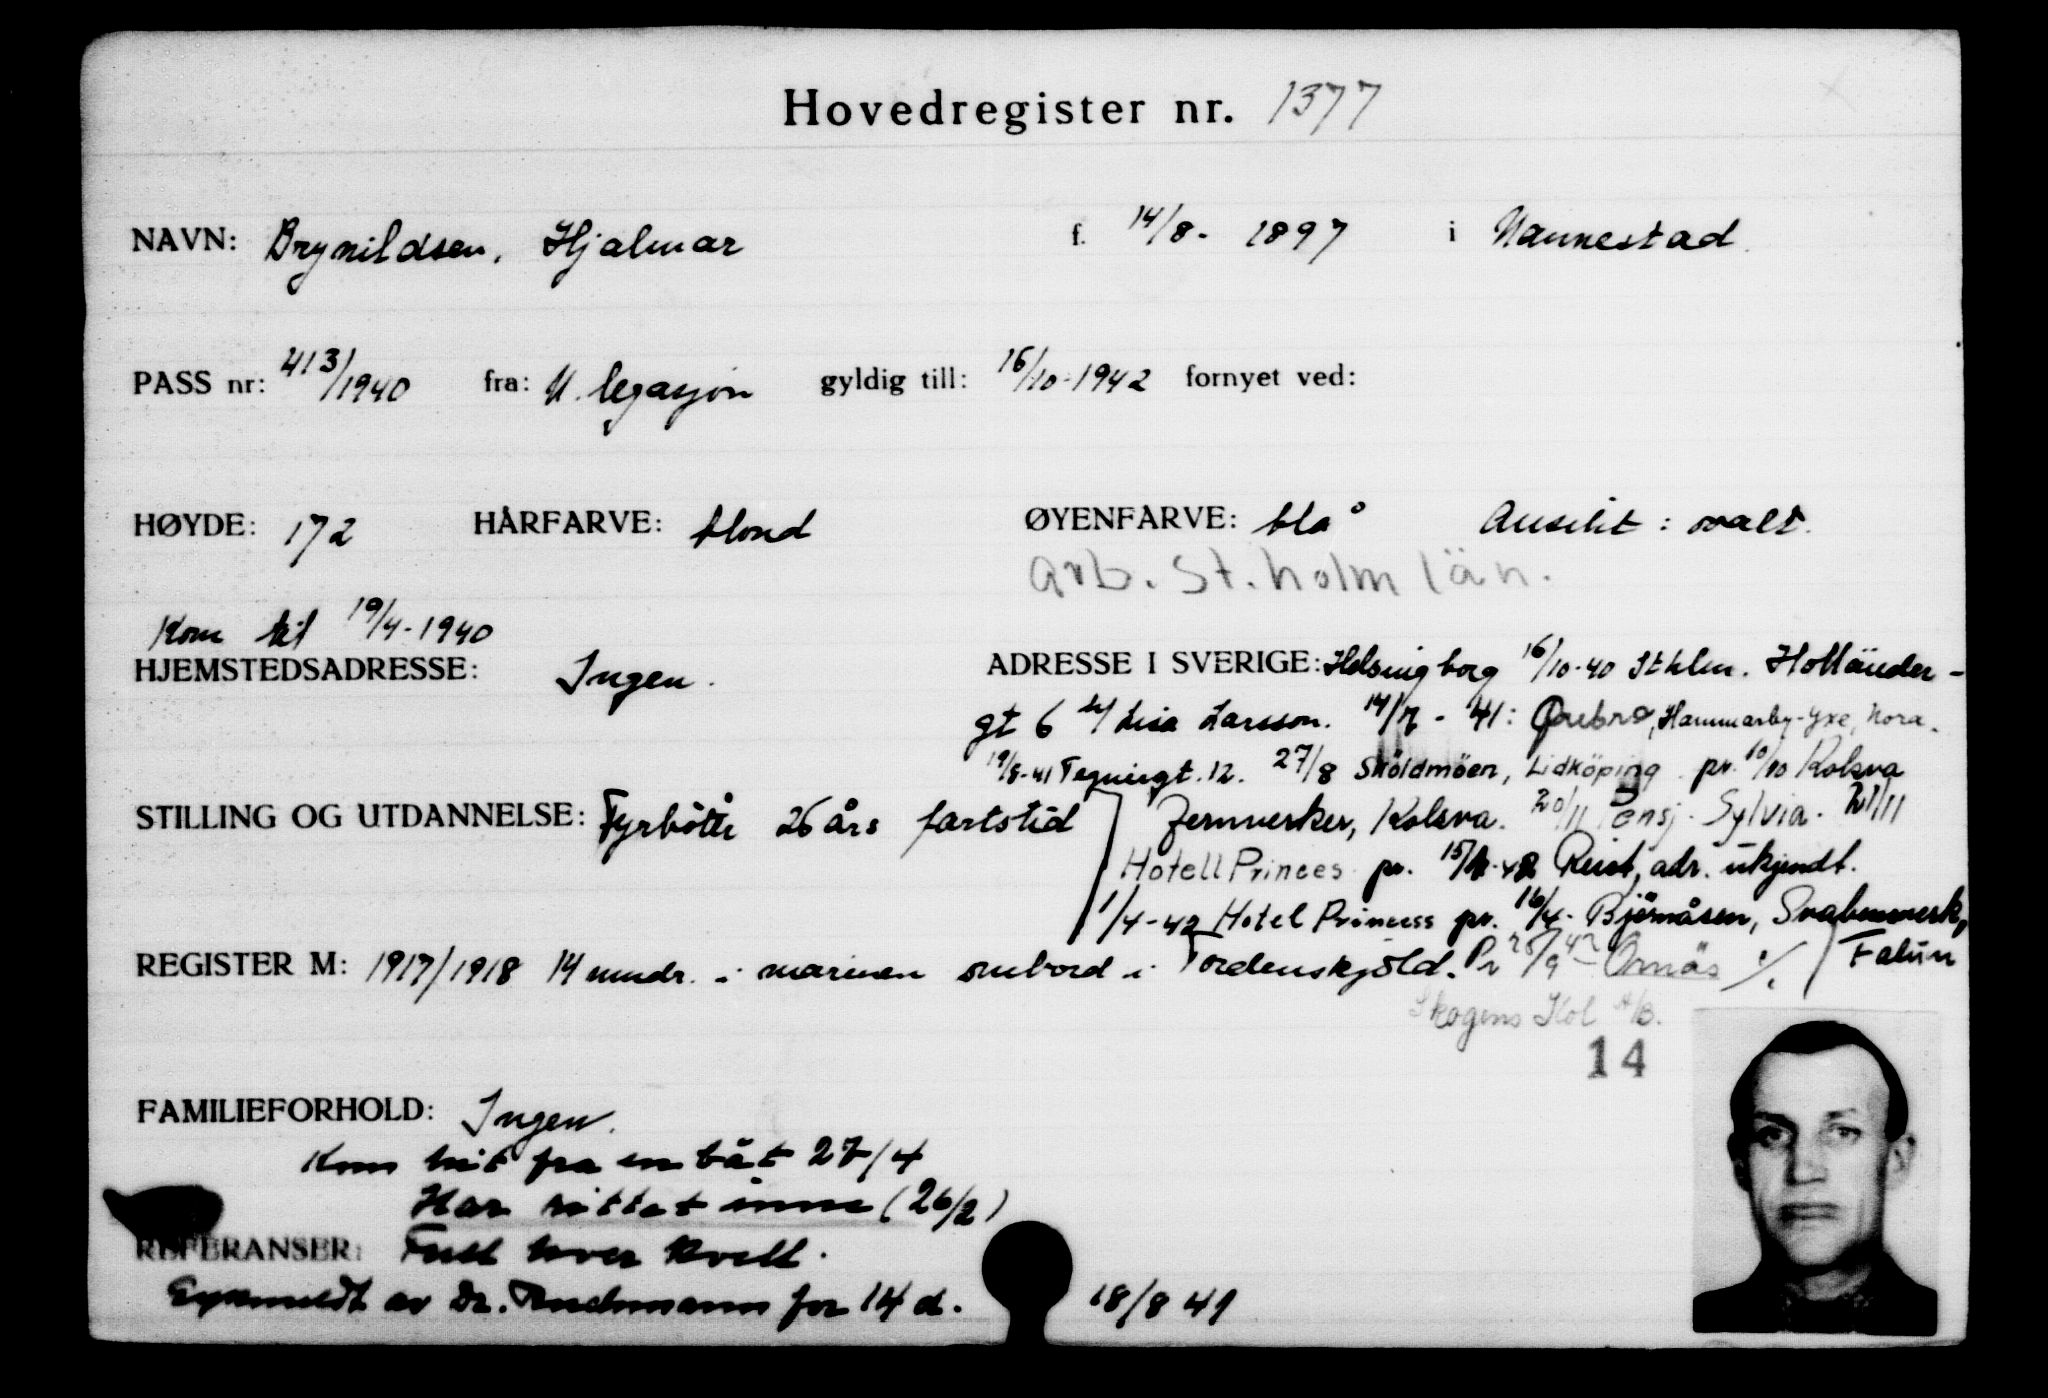 Hovedregister nr. 1377
NAVN: Brynildsen, Hjalmar f. 14/8- 1897 i Nannestad
PASS nr: 413/1940 fra: N. legasjon gyldig till: 16/10-1942 fornyet ved:
HØYDE: 172 HÅRFARVE: blond ØYENFARVE: blå Ansikt: ovalt.
arb. St.holm län.
Kom hit 19/4-1940
HJEMSTEDSADRESSE: Ingen. ADRESSE I SVERIGE: Helsingborg 16/10-40 Sthlm. Holländer-
gt 6 Lisa Larsson. 14/7-41: Örebro, Hammarby-Yxe, Nora.
19/8-41 Tegnérgt. 12. 27/8 Sköldmöen, Lidköping pr. 10/10 Kolsva
STILLING OG UTDANNELSE: Fyrbøter 26 års fartstid Jernverker, Kolsva. 20/11 Pensj. Sylvia. 21/11
Hotell Princes pr. Reist, adr. ukjendt.
1/4-42 Hotel Princess pr. 16/4- Björnåsen, Svabenverk,
REGISTER M: 1917/1918 14 mndr. i marinen ombord i Tordenskjold. Pr 25/9-42 Ornäs Falun
Skogens Kol A/B.
14
FAMILIEFORHOLD: Ingen.
Kom hit fra en båt 27/4
Har sittet inne (26/2)
REFERANSER: Full hver kveld.
Sykmeldt av Dr. for 14 d. 18/8 41